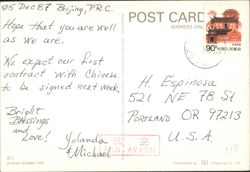 05 Dec 87 Beijing, P.R.C.
Hope that you are well
as we are.
We expect our first
contract with Chinese
to be signed next week.
Bright
Blessings
and
Love!
Yolanda
& Michael
POST CARD
ADDRESS ONLY
H. Espinosa
521 NE 78 St
PORTLAND OR 97213
U.S.A.
航空
PAR AVION